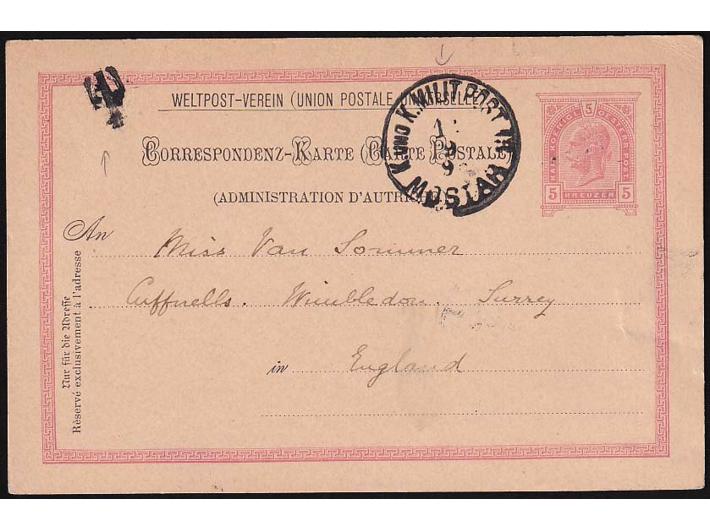 WELTPOST-VEREIN (UNION POSTALE UNIVERSELLE)
CORRESPONDENZ-KARTE (CARTE POSTALE)
(ADMINISTRATION D'AUTRICHE)
K. UND K. MILIT. POST IN
MOSTAR
KAIS. KOENIGL. OESTERR. POST
5
5 KREUZER 5
An
Miss Van Sommer
Cuffnells. Wimbledon. Surrey
in England
Nur für die Adresse
Réservé exclusivement à l'adresse